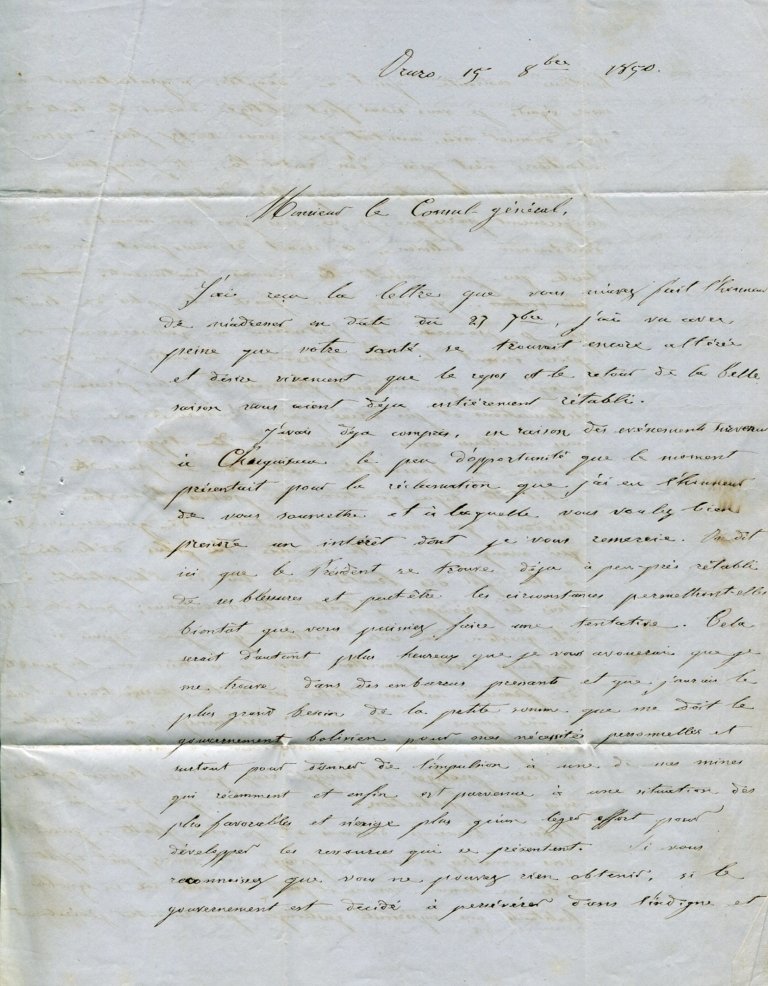 Oruro. 15 8bre 1850.
Monsieur le Consul-général,
J'ai reçu la lettre que vous m'avez fait l'honneur
de m'adresser en date du 27 7bre, j'ai vu avec
peine que votre santé se trouvait encore altérée
et désire vivement que le repos et le retour de la belle
saison vous aient déja entièrement rétabli.
J'avais déja compris, en raison des evénements survenus
à Chuquisaca le peu d'opportunité que le moment
présentait pour la réclamation que j'ai eu l'honneur
de vous soumettre et à laquelle vous voulez bien
prendre un intérêt dont je vous remercie. On dit
ici que le Président se trouve déja à peu-près rétabli
de ses blessures et peut-être les circonstances permettront-elles
bientot que vous puissiez faire une tentative. Cela
serait d'autant plus heureux que je vous avouerai que je
me trouve dans des embarras pressants et que j'aurais le
plus grand besoin de la petite somme que me doit le
gouvernement bolivien pour mes nécessités personnelles et
surtout pour donner de l'impulsion à une de mes mines
qui récemment et enfin est parvenue à une situation des
plus favorables et n'exige plus qu'un leger effort pour
développer les ressources qui se présentent. Si vous
reconnaissez que vous ne pouvez rien obtenir, si le
gouvernement est décidé à persévérer dans l'indigne et